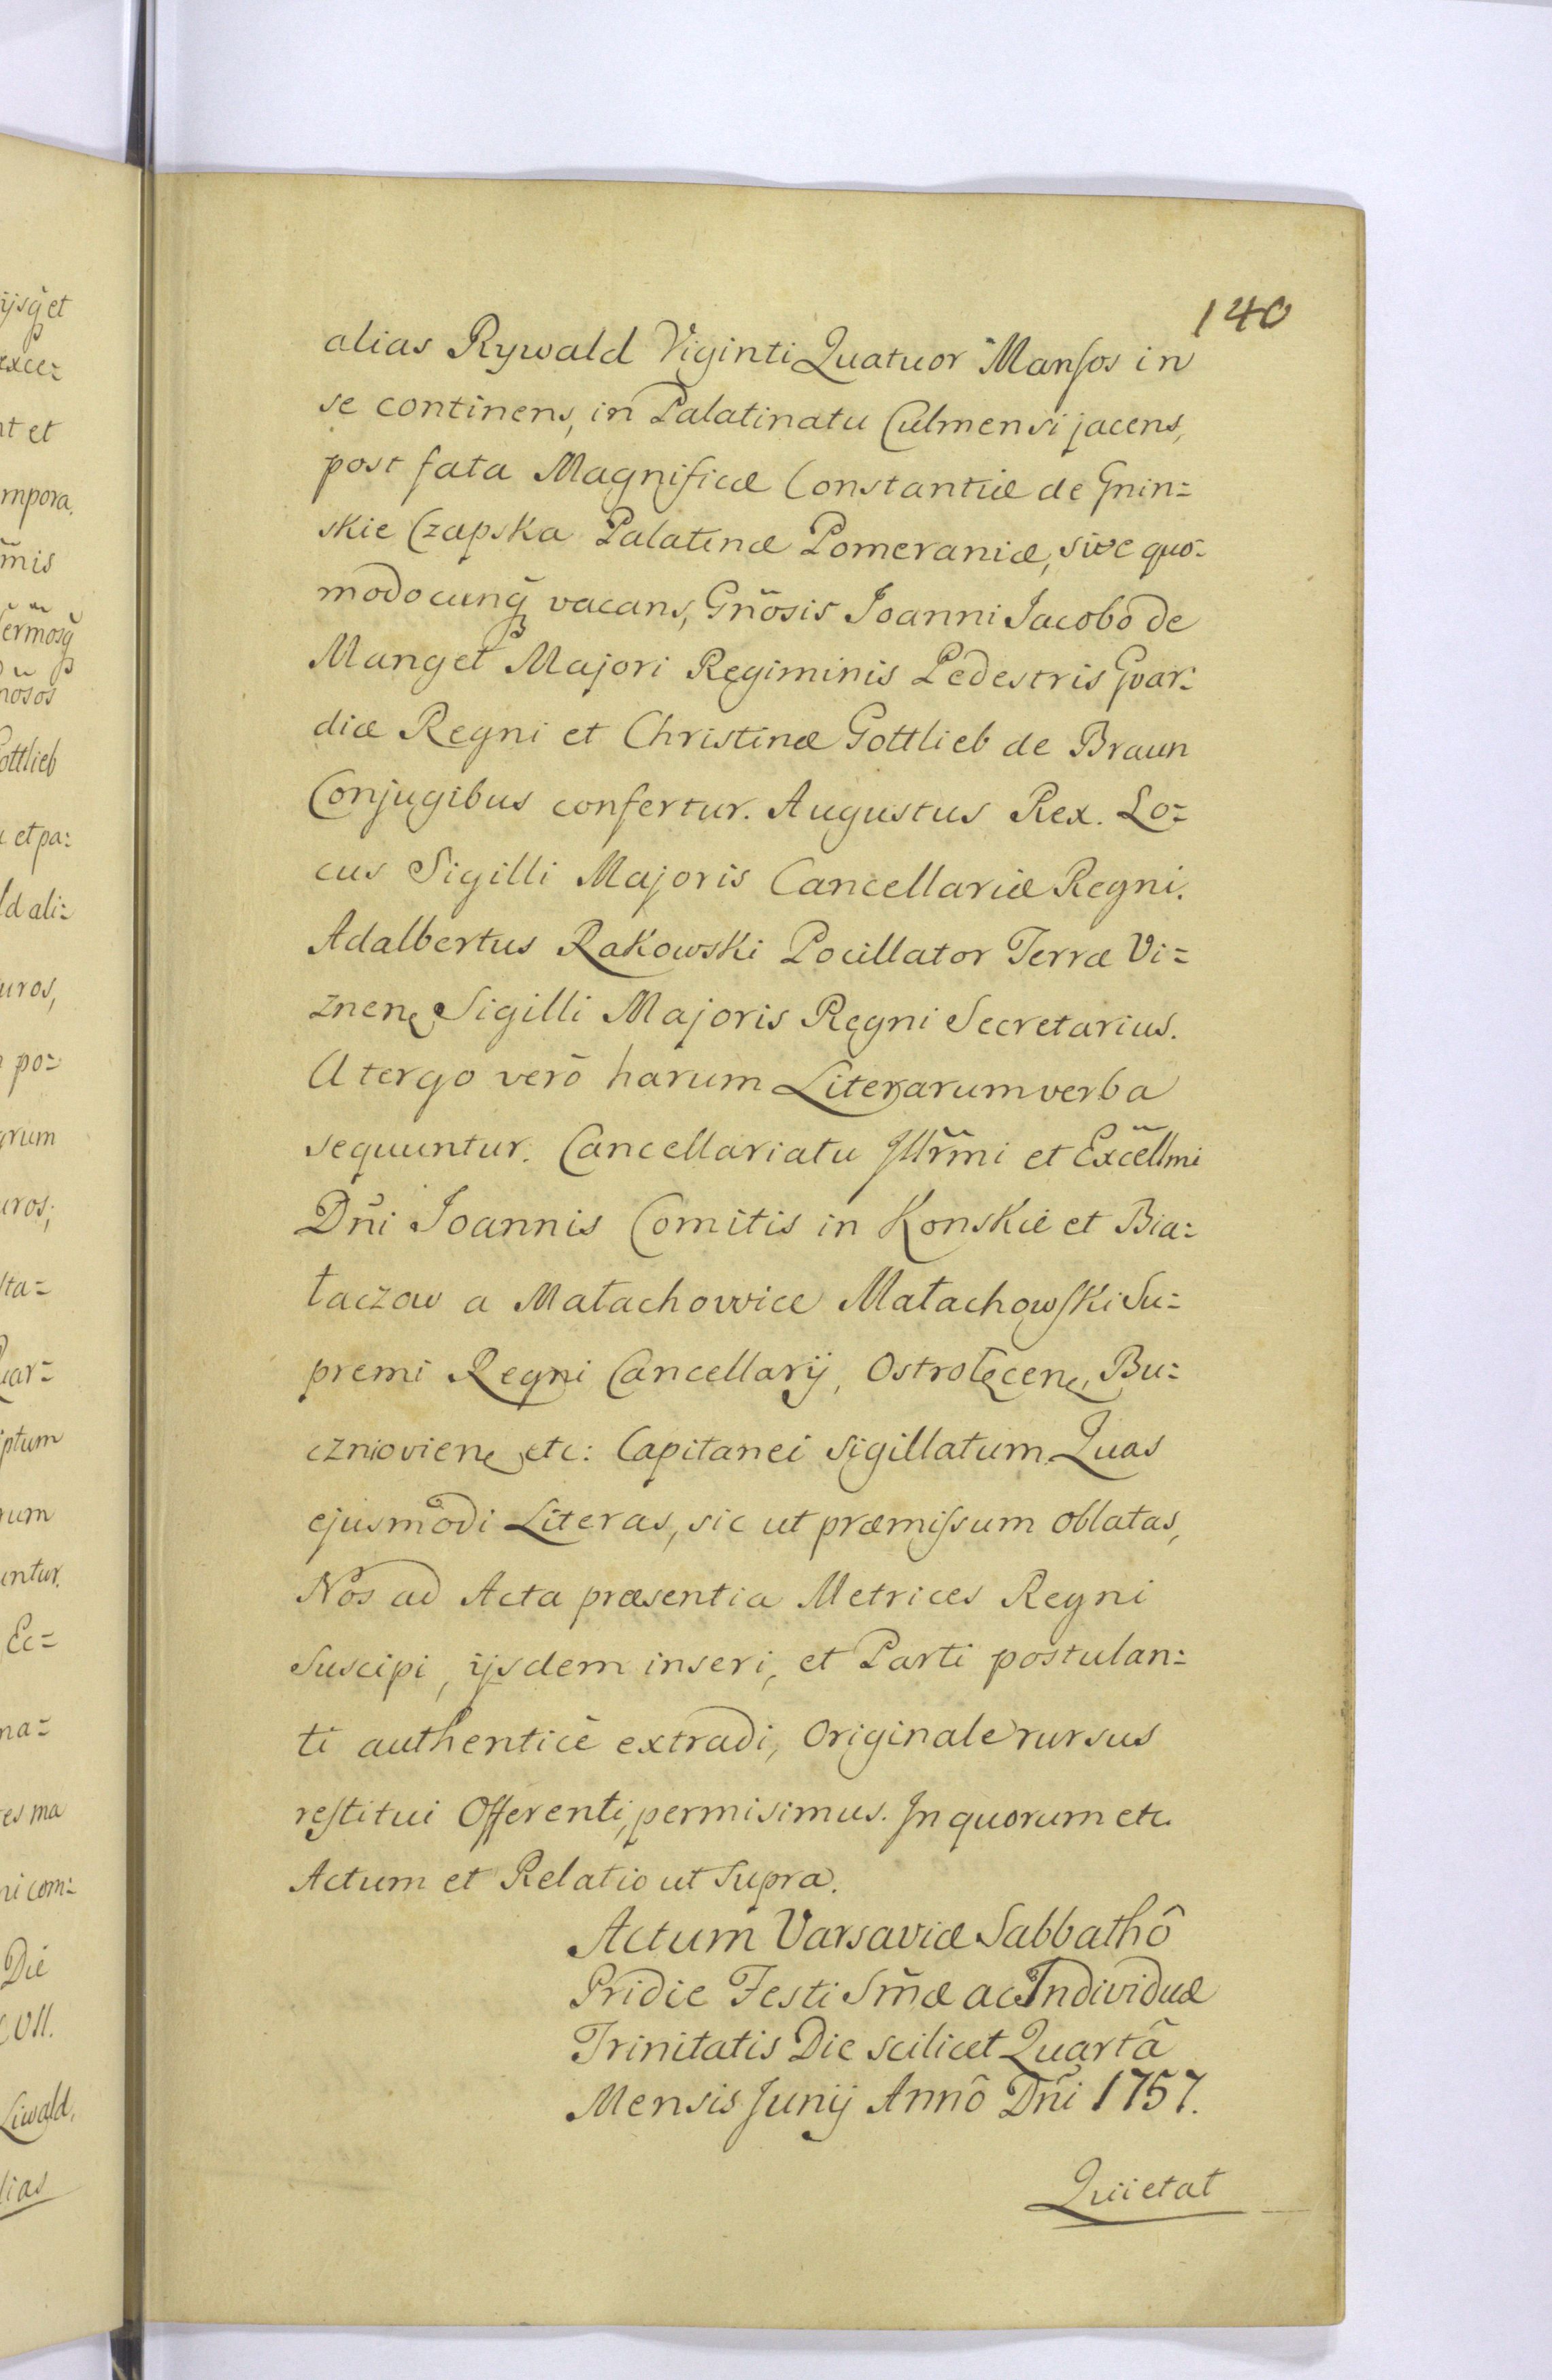 140
alias Rywald Viginti Quatuor Manſos in
se continens, in Palatinatu Culmensi jacens,
post fata Magnificæ Constantiæ de Gnin=
skie Czapska Palatinæ Pomeraniæ, sive quo=
modocunq̃ vacans, Gñosis Joanni Jacobo de
Manget Majori Regiminis Pedestris Gvar=
diæ Regni et Christinæ Gottlieb de Braun
Conjugibus confertur. Augustus Rex. Lo=
cus Sigilli Majoris Cancellariæ Regni.
Adalbertus Rakowski Pocillator Terræ Vi=
znenę Sigilli Majoris Regni Secretarius.
A tergo verò harum Literarum verba
sequuntur. Cancellariatu Jllr̃mi et Excellm̃i
Dñi Joannis Comitis in Konskie et Bia=
łaczow a Małachowice Małachowſki Su=
premi Regni Cancellarij, Ostrołęcenę, Bu=
cznioviенę etc: Capitanei sigillatum. Quas
ejusmodi Literas, sic ut præmiſsum oblatas,
Nos ad Acta præsentia Metrices Regni
suscipi, ijsdem inseri, et Parti postulan=
ti authenticè extradi, Originale rursus
reſtitui Offerenti, permisimus. In quorum etc.
Actum et Relatio ut Supra.
Actum Varsaviæ Sabbathô
Pridie Festi Sm̃æ ac Individuæ
Trinitatis Die scilicet Quartâ
Mensis Junij Annô Dñi 1757.
Quietat
ijsq̃ et
exce=
nt et
mpora.
m̃is
nosos
ottlieb
et pa=
ld ali=
uros,
po=
arum
uros;
lta=
uar=
iptum
rum
untur.
Ec=
na=
es ma
ni com=
Die
Liwald,
lias